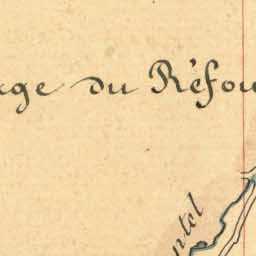 age du Réfou
ntel